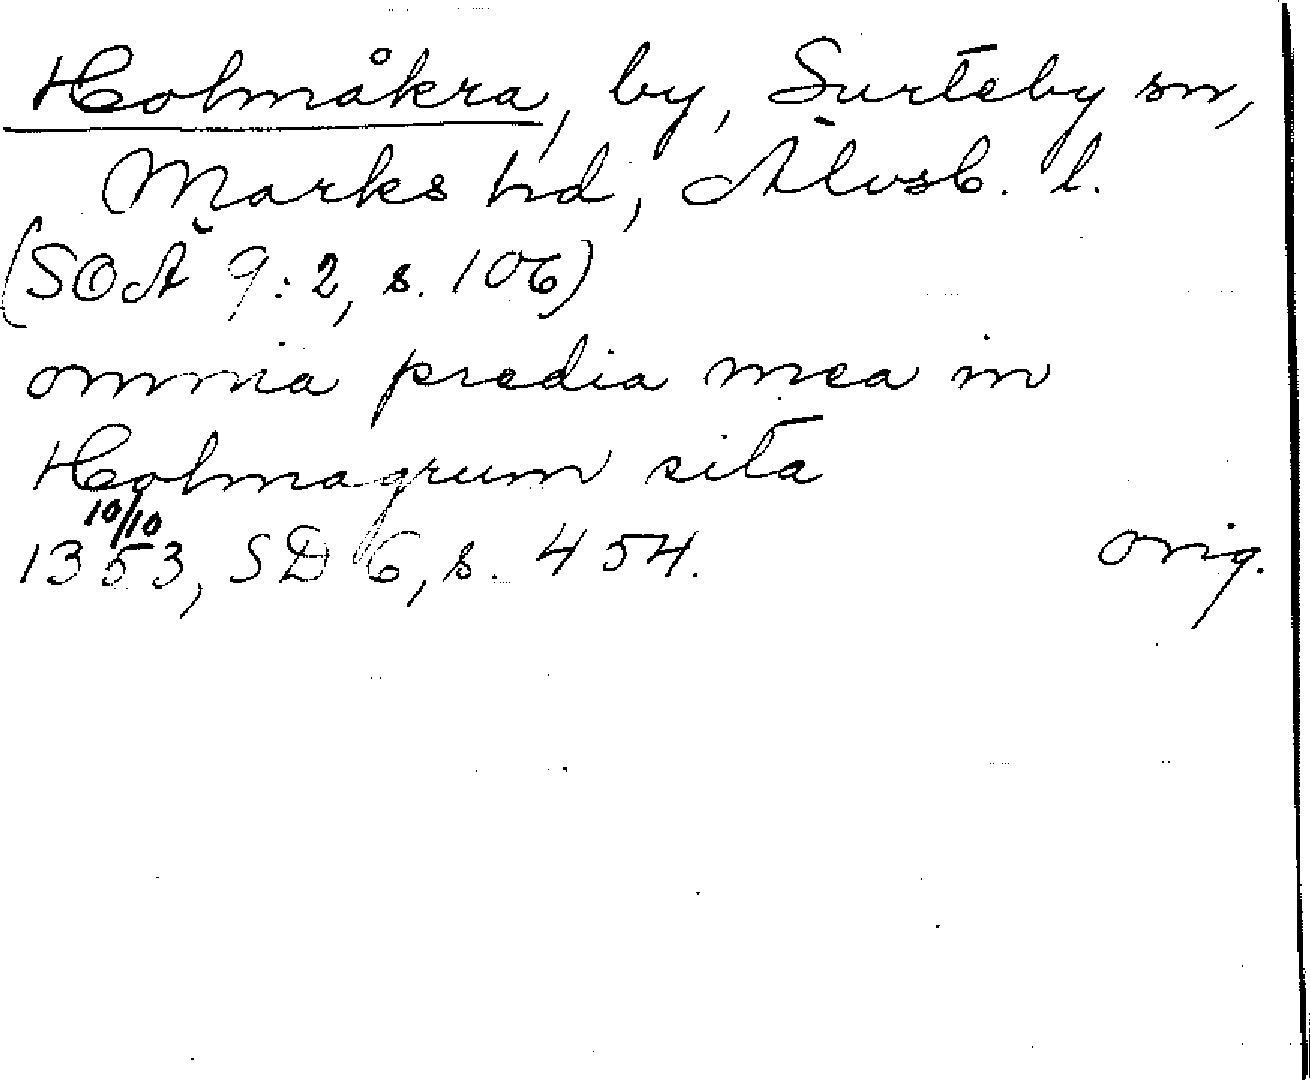 Holmåkra, by, Surteby sn,
Marks hd, Älvsb. l.
(SOÄ 9:2, s. 106)
omnia predia mea in
Holmagrum sita
10/10
1353, SD 6, s. 454. orig.